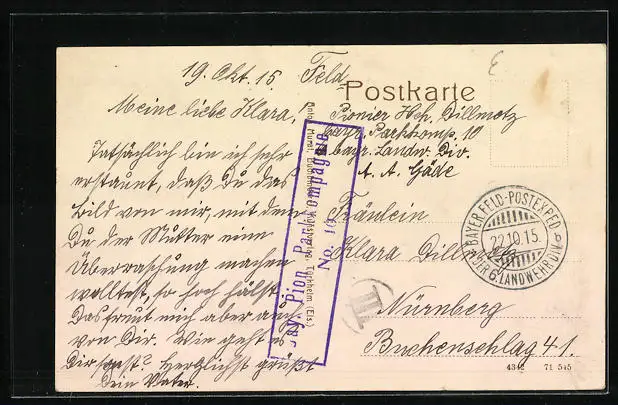 19. Okt. 15.
Meine liebe Klara!
Tatsächlich bin ich sehr
erstaunt, daß Du das
Bild von mir, mit dem
Du der Mutter eine
Überraschung machen
wolltest, so hoch hälst.
Das freut mich aber auch
von Dir. Wie geht es
Dir sonst? Herzlichst grüßt
Dein Vater.
Feld-
Postkarte
Pionier Hch. Dillmetz
bayr. Parkkomp. 10
6. bayr. Landw. Div.
A. A. Gäde
Fräulein
Klara
Nürnberg
Buchenschlag 41.
Pion. Park Kompagnie
No. 10
BAYER. FELD-POSTEXPED.
22.10.15.
DER 6. LANDWEHRDIV.
III
Türkheim (Els)
4342 71 545